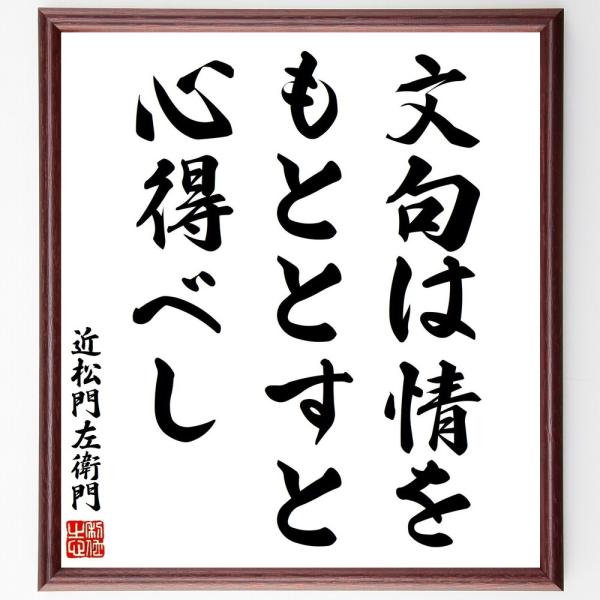 文句は情を
もととすと
心得べし
近松門左衛門